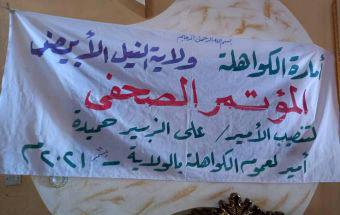 بسم الله الرحمن الرحيم
أمارة الكواهلة ولاية النيل الأبيض
المؤتمر الصحفي
لتنصيب الأمير/ على الزبير حميدة
أمير لعموم الكواهلة بالولاية - ٢٠٢١م